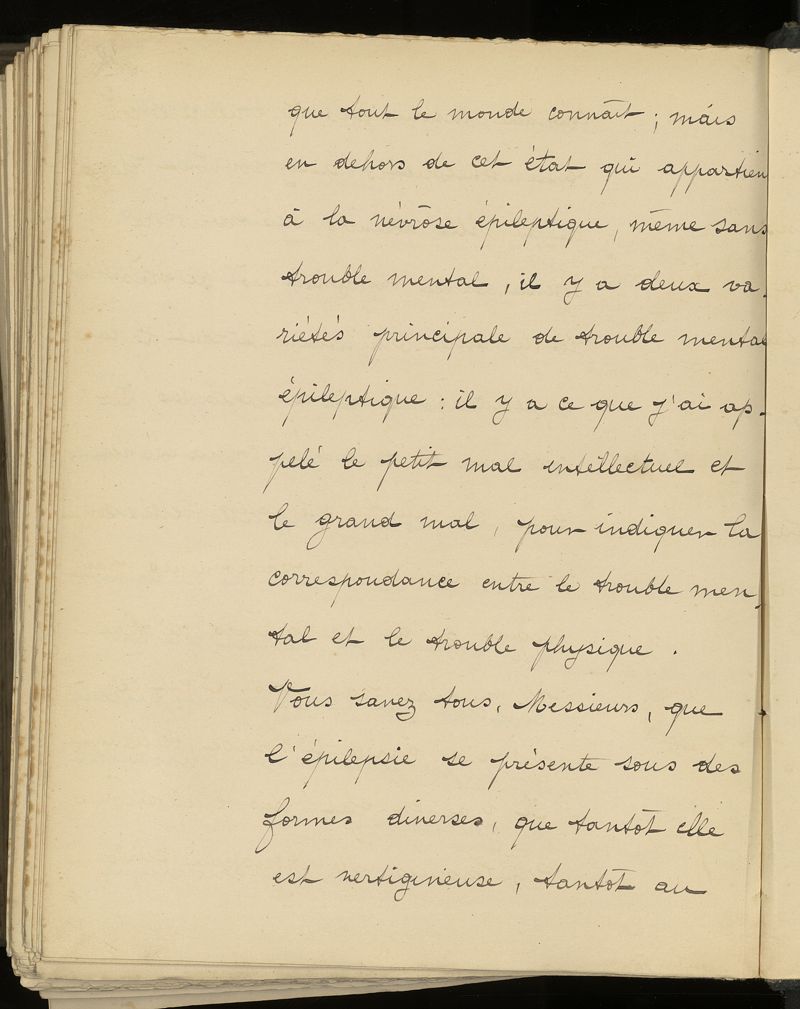 que tout le monde connaît ; mais
en dehors de cet état qui appartien
à la névrôse épileptique, même sans
trouble mental, il y a deux va-
riétés principale de trouble mental
épileptique : il y a ce que j'ai ap-
pelé le petit mal intellectuel et
le grand mal, pour indiquer la
correspondance entre le trouble men-
tal et le trouble physique.
Vous savez tous, Messieurs, que
l'épilepsie se présente sous des
formes diverses, que tantôt elle
est vertigineuse, tantôt au